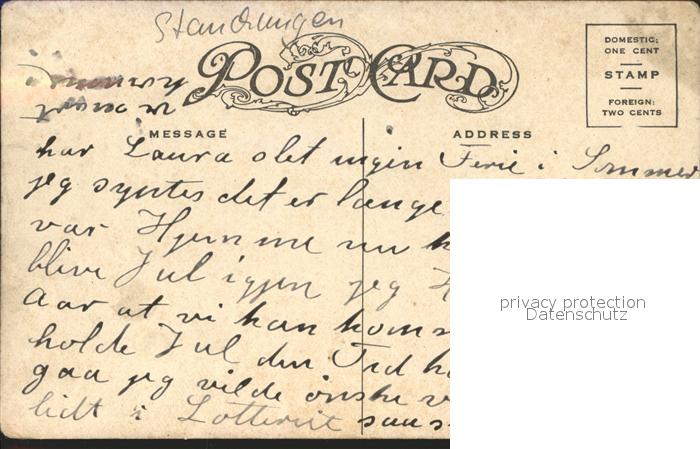 POST CARD
DOMESTIC:
ONE CENT
STAMP
FOREIGN:
TWO CENTS
MESSAGE
ADDRESS
har Laura slet ingen Ferie i Sommer
jeg syntes det er længe
var Hjemme nu
blive Jul igjen jeg
Aar at vi kan
holde Jul den Tid
gaa jeg vilde önske
lidt i Lotteriet
privacy protection
Datenschutz